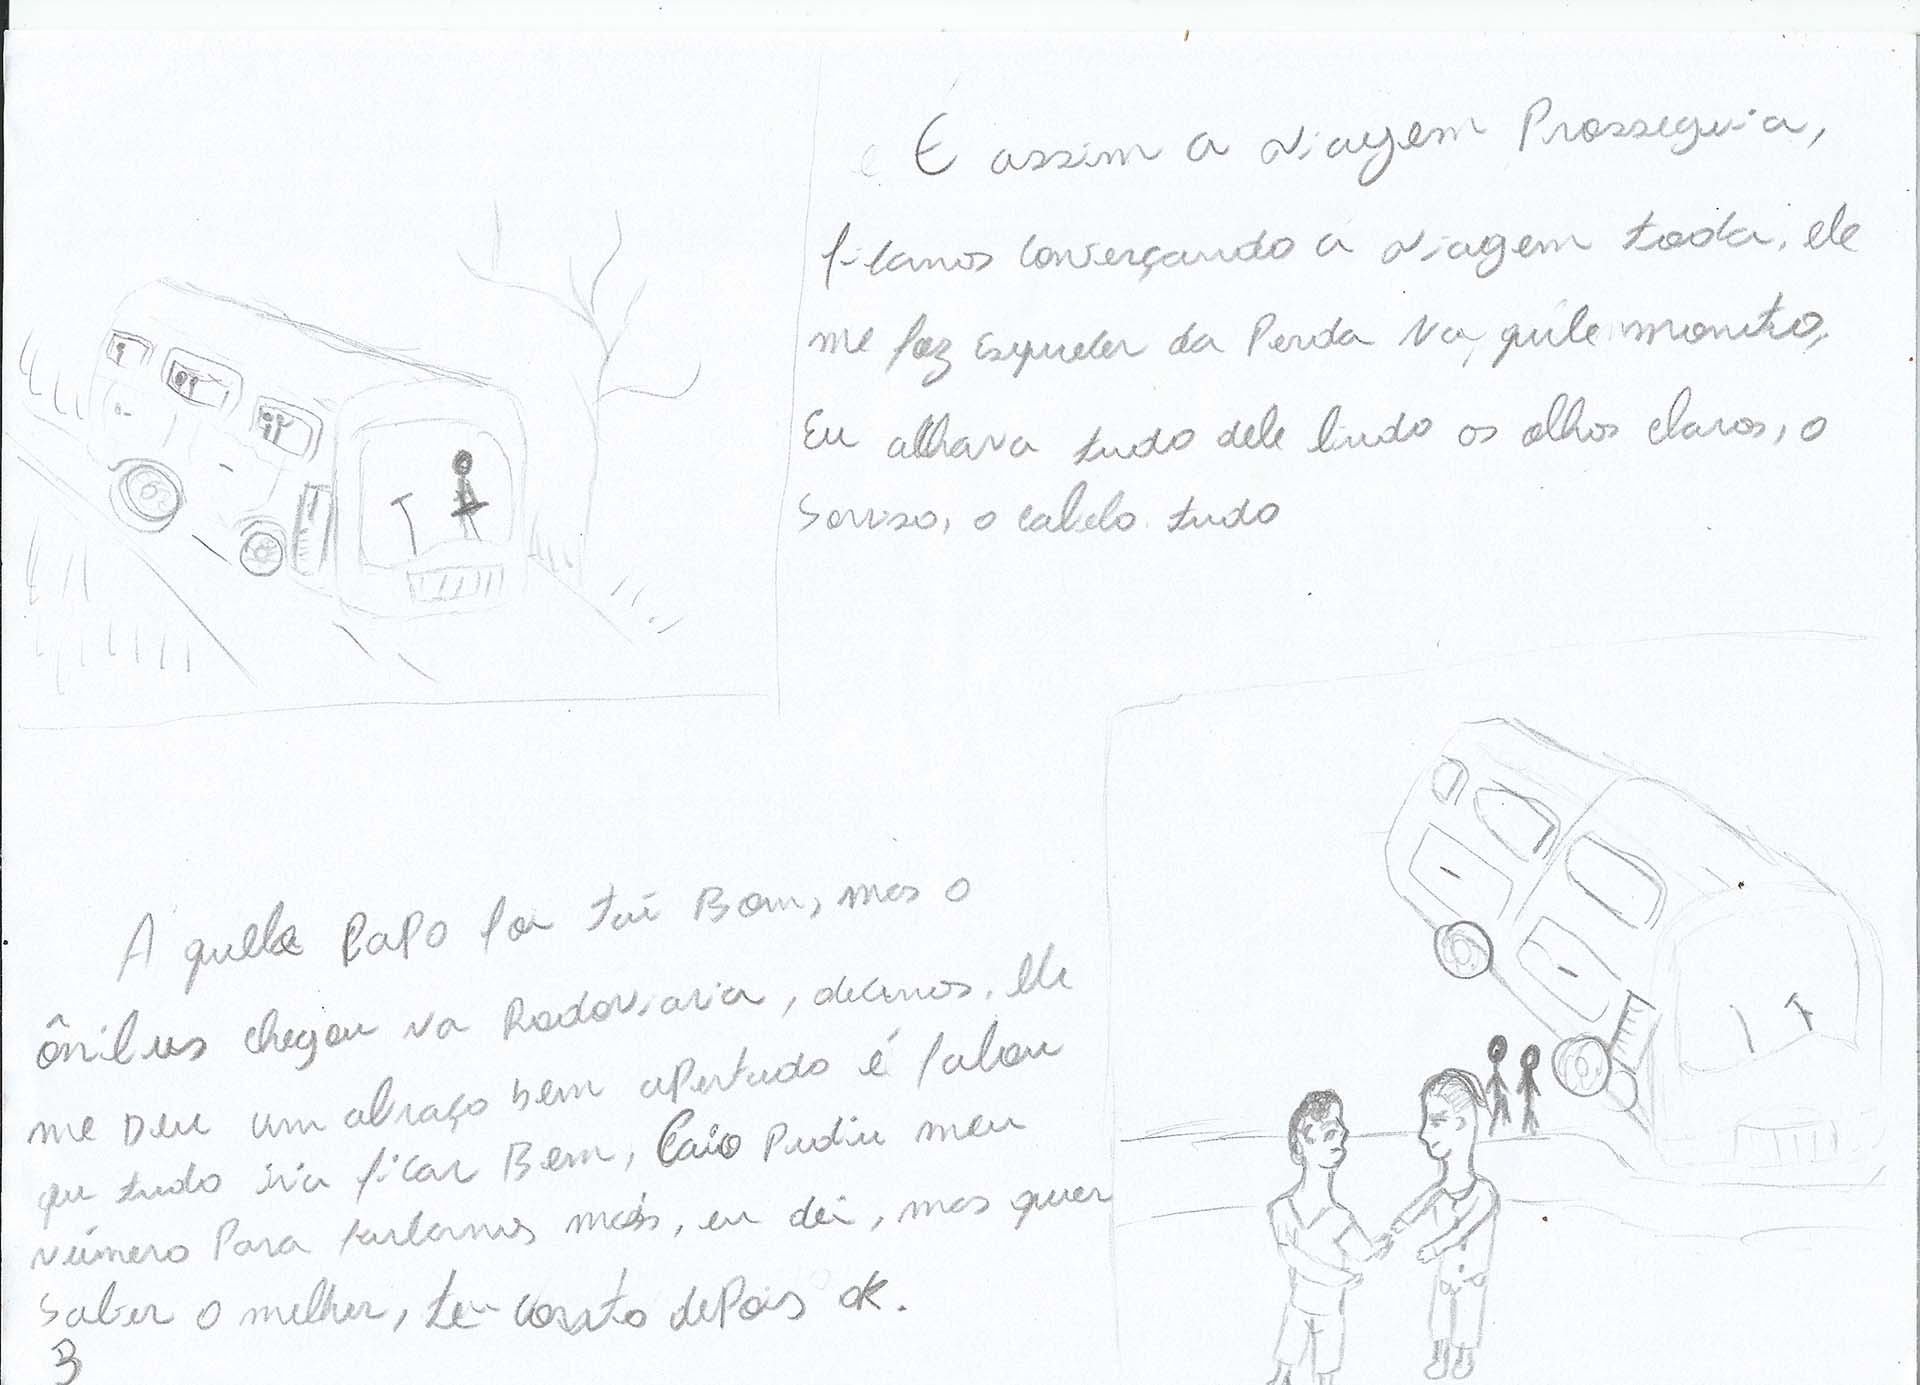 E assim a viagem Prosseguia,
ficamos converçando a viagem toda, ele
me fez esquecer da Perda Na quele momento,
Eu olhava tudo dele lindo os olhos claros, o
Sorriso, o cabelo tudo
A quele PaPo foi tão Bom, mas o
ônibus chegou na Rodoviaria, decemos, ele
me Deu um abraço bem apertado é falou
que tudo iria ficar Bem, Caio Pediu meu
número Para falarmos mais, eu dei, mas quer
Saber o melhor, te conto depois ok.
3